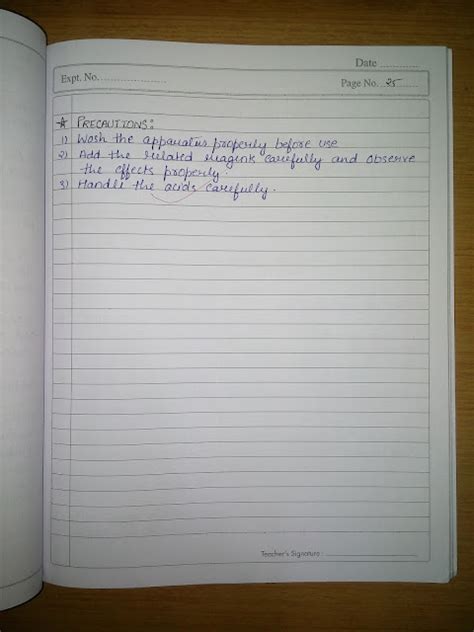 Date ............
Expt. No. ........................
Page No. 25
☆ PRECAUTIONS:
1) Wash the apparatus properly before use
2) Add the related reagints carefully and observe
the effects properly.
3) Handle the acids carefully.
Teacher's Signature :